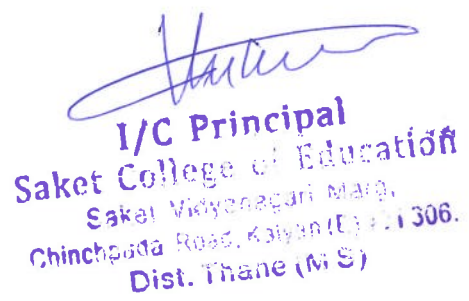 I/C Principal
Saket College of Education
Saket Vidyanagari Marg,
Chinchpada Road, Kalyan (E) 306.
Dist. Thane (M S)